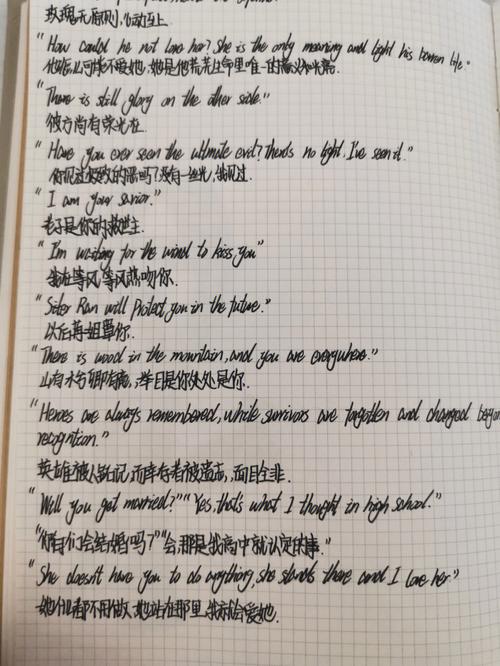 玫瑰无原则,心动至上
"How could he not love her? She is the only meaning and light his barren life."
他怎么可能不爱她,她是他荒芜生命里唯一的意义和光亮.
"There is still glory on the other side."
彼方尚有荣光在.
"Have you ever seen the ultimate evil? There's no light, I've seen it."
你见过极致的恶吗?没有一丝光,我见过.
"I am your savior."
老子是你的救世主.
"I'm waiting for the wind to kiss you"
我在等风,等风热吻你.
"Sister Ran will Protect you in the future."
以后苒姐罩你.
"There is wood in the mountain, and you are everywhere."
山有木兮卿有意,举目是你处处是你.
"Heroes are always remembered, while survivors are forgotten and changed beyon
recognition."
英雄被人铭记,而幸存者被遗忘,面目全非.
"Will you get married?" "Yes, that's what I thought in high school."
"你们会结婚吗?" "会,那是我高中就认定的事."
"She doesn't have you to do anything, she stands there and I love her."
她什么都不用做,她站在那里,我就会爱她.